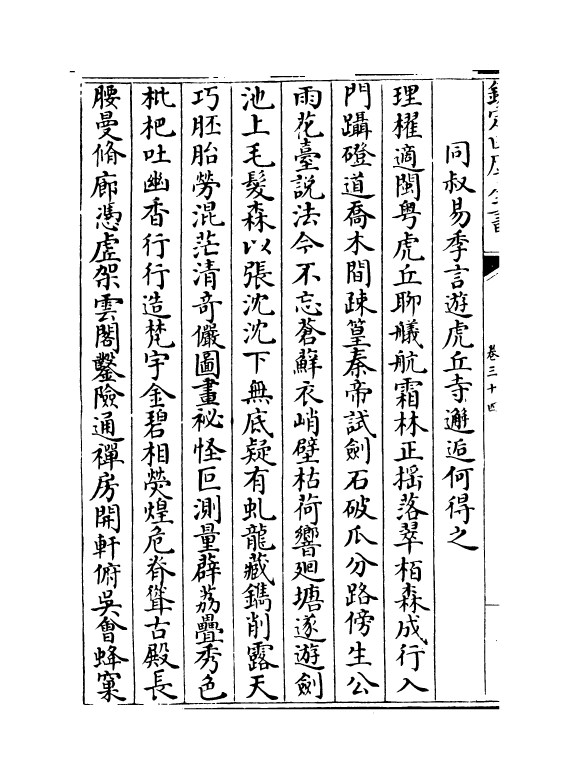 欽定四庫全書
卷三十四
同叔易季言遊虎丘寺邂逅何得之
理櫂適閩粤虎丘聊艤航霜林正揺落翠栢森成行入
門躡磴道喬木間疎篁秦帝試劍石破瓜分路傍生公
雨花臺説法今不忘蒼蘚衣峭壁枯荷響廻塘遂遊劍
池上毛髮森以張沈沈下無底疑有虬龍藏鐫削露天
巧胚胎勞混茫清竒儼圖畫袐怪叵測量薜荔疊秀色
枇杷吐幽香行行造梵宇金碧相熒煌危脊聳古殿長
腰曼脩廊憑虚架雲閣鑿險通禪房開軒俯吳會蜂窠